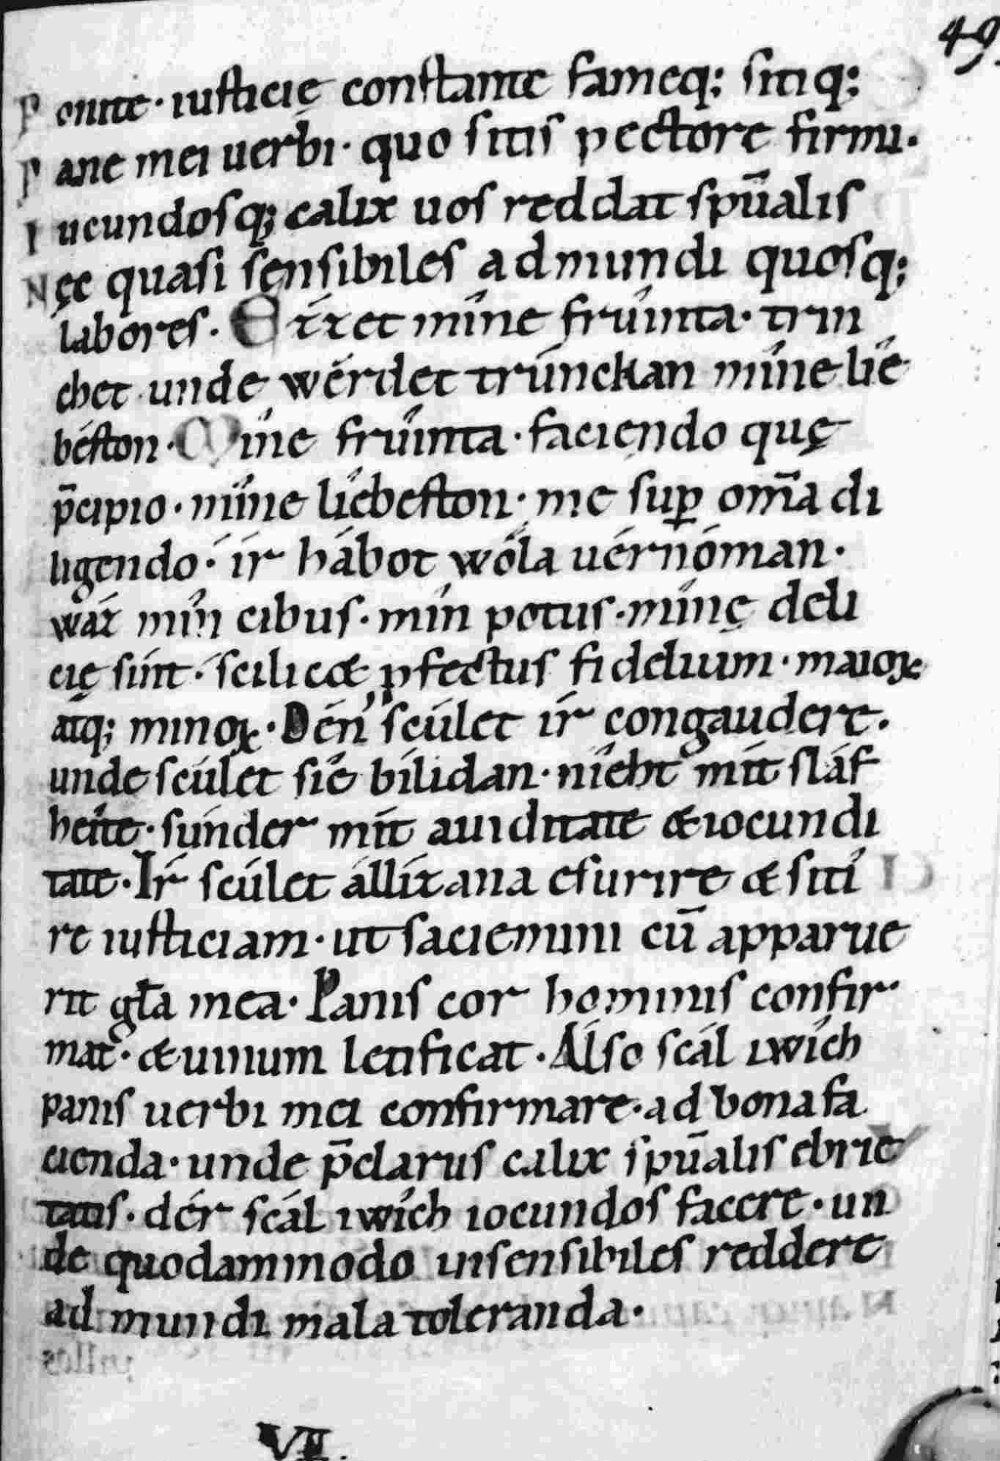 49.
Ponite· iusticie constante fameq; sitiq;
Pane mei uerbi· quo sitis pectore firmi·
Iucundosq; calix uos reddat spũalis
Nęc quasi sensibiles ad mundi quosq;
labores· Ézzet mîne frúinta· trin
chet unde wérdet trúnckan mîne lîe
béston· Mîne frúinta· faciendo quę
p̄cipio· mîne lîebeston· me sup̱ om̄a di
ligendo· ír hábot wóla uérnóman·
wáz mîn cibus· mîn potus· mîne deli
cię sínt· scilicet ꝓfectus fidelium· maioꝝ
atq; minoꝝ· Dén scúlet ír congaudere·
unde scúlet sîe bílidan· nîeht mít sláf
heîte· súnder mít auiditate & iocundi
tate· Ír scúlet állizana esurire & siti
re iusticiam· ut saciemini cũ apparue
rit gl̄a mea· Panis cor hominis confir
mat· & uinum letificat· Álso scál iwích
panis uerbi mei confirmare· ad bona fa
cienda· unde p̄clarus calix spũalis ebrie
tatis· dér scál iwích iocundos facere· un
de quodammodo insensibiles reddere
ad mundi mala toleranda·
VII.